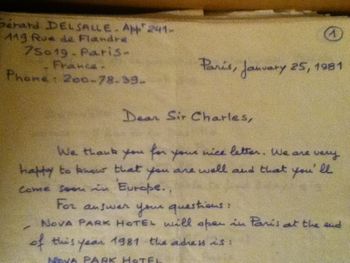 Gérard DELSALLE - Appt 241 -
①
119 Rue de Flandre
75019 - Paris -
- France -
Phone : 200-78-39 -
Paris, January 25, 1981
Dear Sir Charles,
We thank you for your nice letter. We are very
happy to know that you are well and that you'll
come soon in Europe..
For answer your questions :
- NOVA PARK HOTEL will open in Paris at the end
of this year 1981 the adress is :
NOVA PARK HOTEL